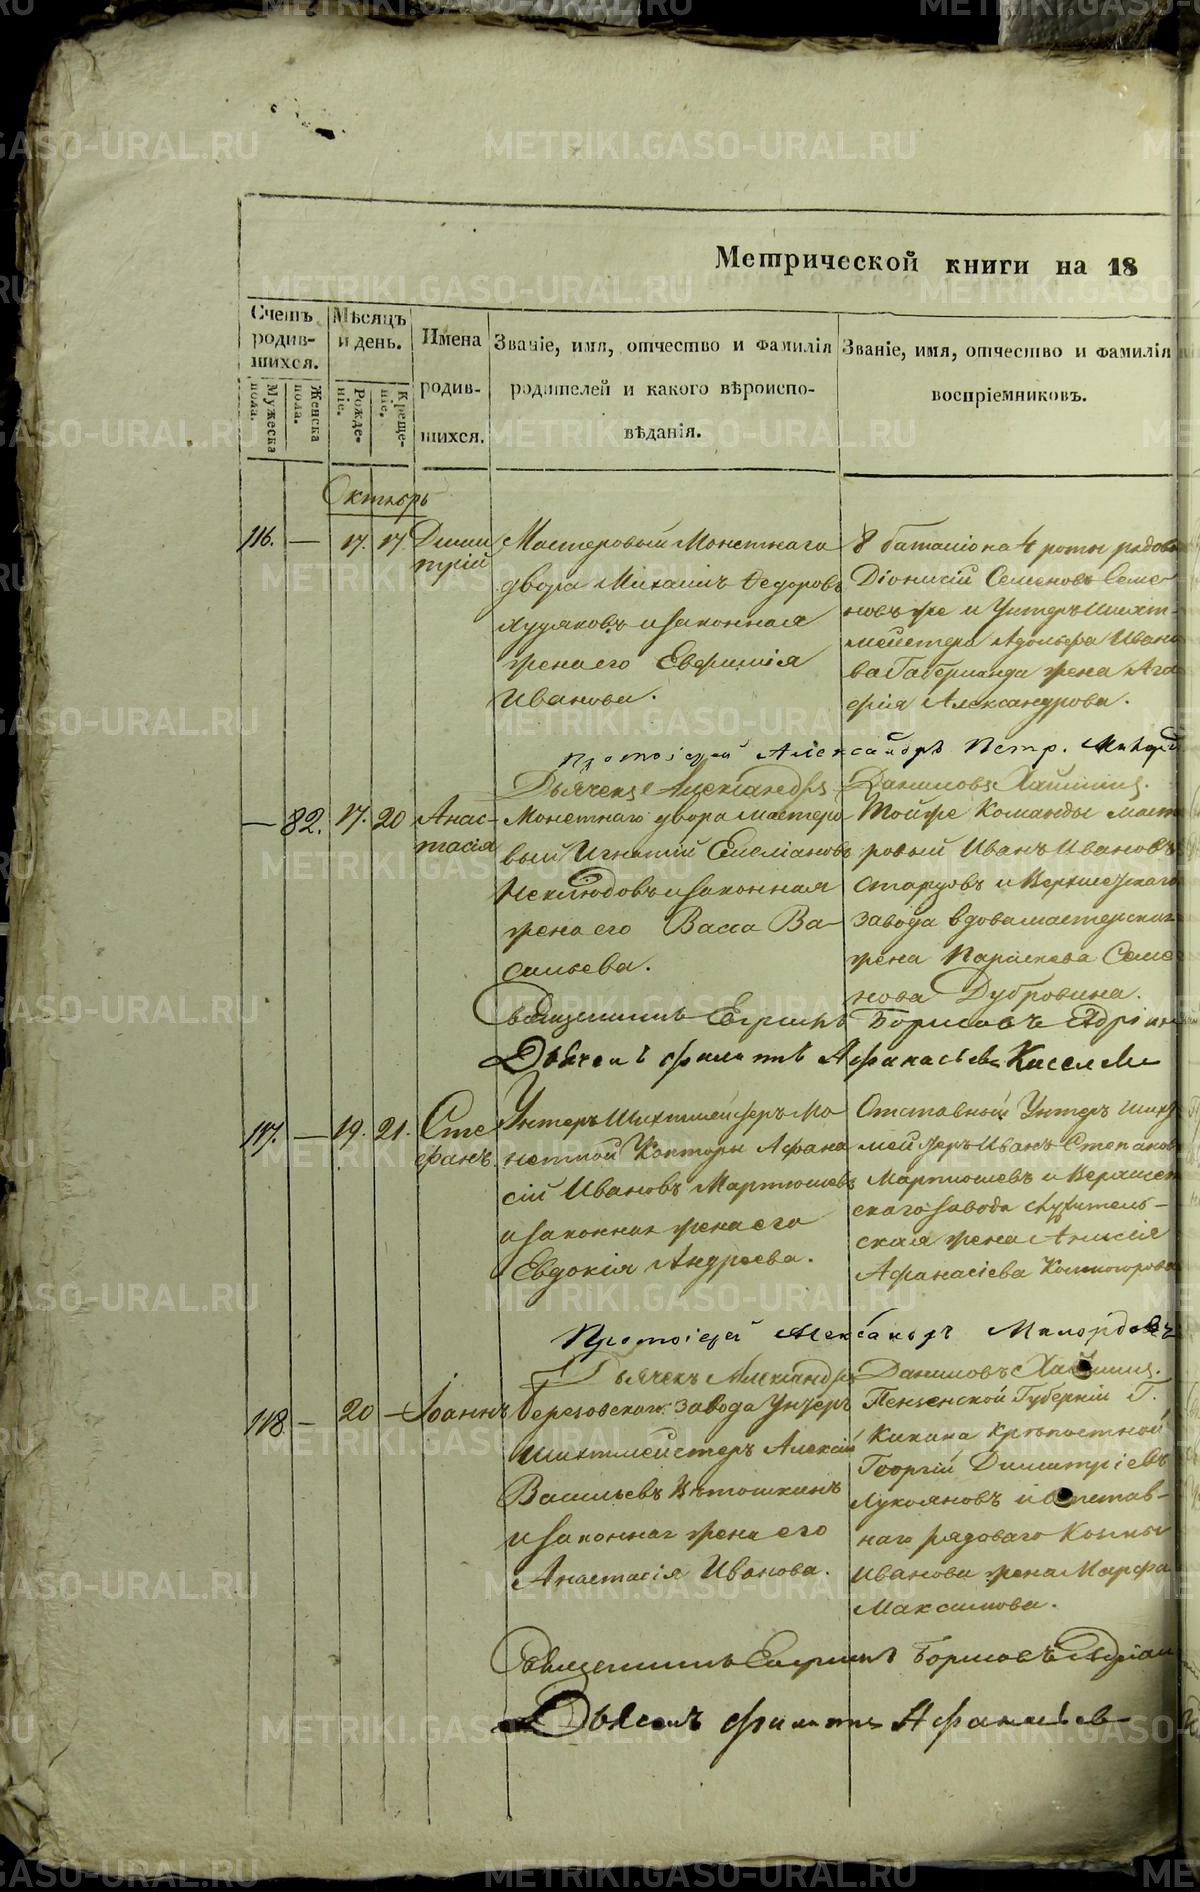 Метрической книги на 18
Счетъ родившихся.
Мужеска пола.
Женска пола.
Мѣсяцъ и день.
Рожденіе.
Крещеніе.
Имена родившихся.
Званіе, имя, отчество и фамилія
родителей и какого вѣроиспо-
вѣданія.
Званіе, имя, отчество и фамилія
воспріемниковъ.
Октябрь
116. — 17. 17 Дими
трій
Мастеровый Монетнаго
двора Михаилъ Федоровъ
Худяковъ и законная
жена его Евфимія
Иванова.
8 баталіона 4 роты рядово
Діонисій Семеновъ Семе
новъ же и Унтеръ Шихт-
мейстера Адольфа Ивано
ва Габерланда жена Ага
фія Александрова.
Протоіерей Александръ Петр.
Дьячекъ Александръ Даниловъ
— 82. 17. 20 Анас-
тасія
Монетнаго двора мастеро
вый Игнатій Емеліановъ
Неклюдовъ и законная
жена его Васса Ва
сильева.
Тойже Команды масте
ровый Иванъ Ивановъ
Старцовъ и Верхисетскаго
завода вдова мастерская
жена Параскева Семе
нова Дубровина.
Священникъ Борисовъ
Дьячекъ Филиппъ Афанасьевъ Киселевъ
117. — 19. 21. Сте
фанъ
Унтеръ Шихтмейстеръ Мо
нетной Конторы Афана
сій Ивановъ Мартюшевъ
и законная жена его
Евдокія Андреева.
Отставный Унтеръ Шихт
мейстеръ Иванъ Степанов
Мартюшевъ и Верхисет
скаго завода
ская жена Анисія
Афанасіева
Протоіерей Александръ
Дьячекъ Александръ Даниловъ
118 — 20 — Іоаннъ
Березовскаго завода Унтеръ
шихтмейстеръ Алексій
Васильевъ
и законная жена его
Анастасія Иванова.
Пензенской Губерніи Г.
Кикина Крѣпостной
Георгій Димитріевъ
Лукояновъ и отстав-
наго рядоваго Козмы
Иванова жена Марфа
Максимова.
Священникъ Борисовъ
Дьячекъ Филиппъ Афанасьевъ
METRIKI.GASO-URAL.RU